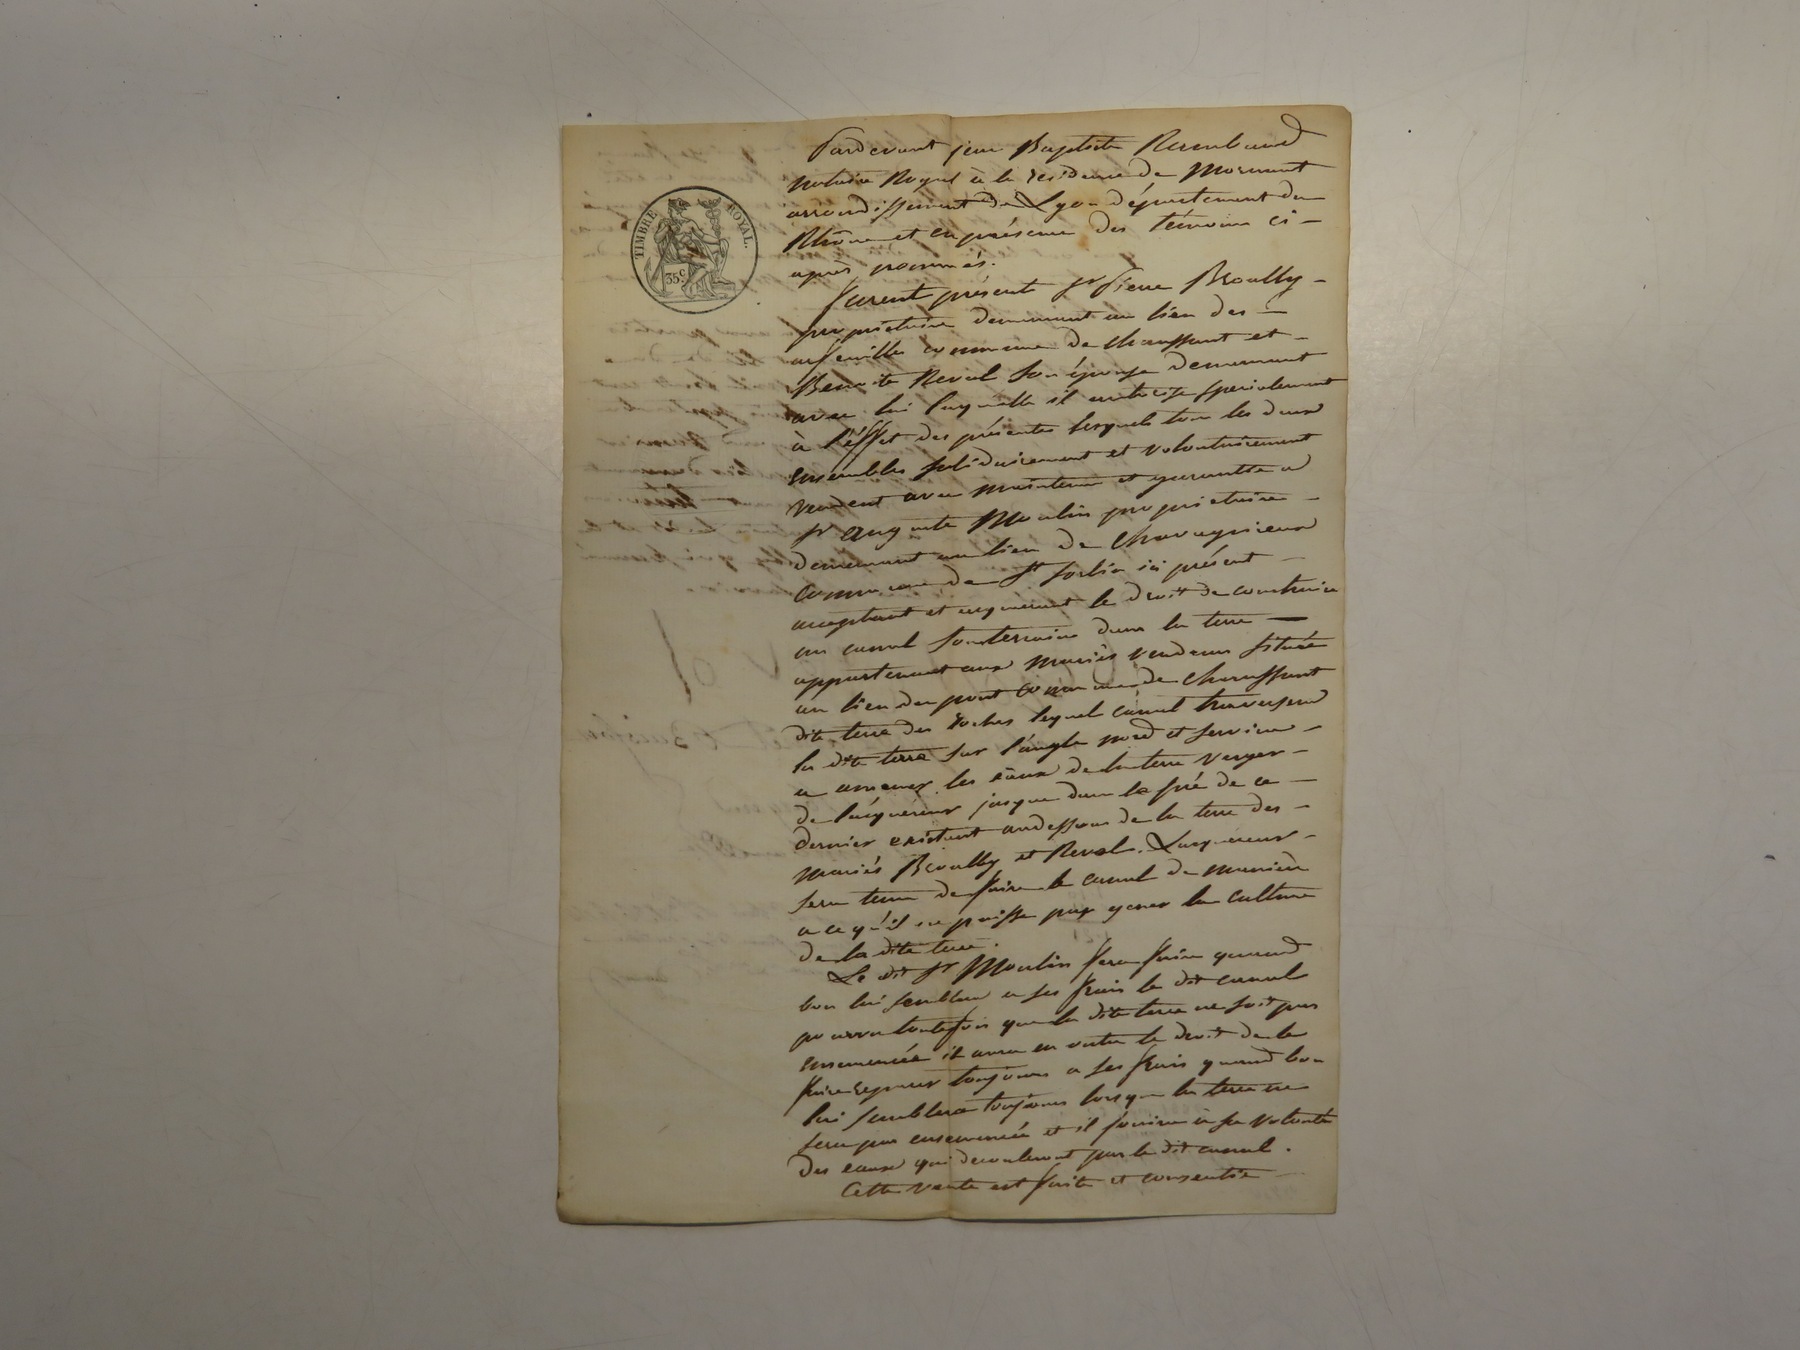 TIMBRE ROYAL.
35 c
Pardevant jean Baptiste Rambaud
notaire Royal à la residence de Mornant
arrondissement de Lyon département du
Rhône et en présence des témoins ci-
après nommés.
furent présents sr pierre Broally
propriétaire demeurant au lieu des
arfeuilles commune de chaussant et
Benoite Reval son épouse demeurant
avec lui laquelle il autorise specialement
à l'effet des présentes lesquels tous les deux
ensembles solidairement et volontairement
vendent avec maintenue et garantie a
sr auguste Moulin propriétaire
demeurant au lieu de Chavagnieux
commune de st sorlin ici présent
acceptant et acquerant le droit de construire
un canal souterrain dans la terre
appartenant aux mariés vendeurs située
au lieu du pont commune de chaussant
dite terre des roches lequel canal traversera
la dite terre sur l'angle nord et servira
a amener les eaux de la terre verger
de l'acquereur jusque dans le pré de ce
dernier existant audessous de la terre des
mariés Broally et Reval. Lacquereur
sera tenu de faire le canal de maniere
a ce qu'il ne puisse pas gener la culture
de la dite terre.
Le dit sr Moulin fera faire quand
bon lui semblera a ses frais le dit canal
pourvu toutefois que la dite terre ne soit pas
ensemencée il aura en outre le droit de le
faire reparer toujours a ses frais quand bon
lui semblera toujours lorsque la terre ne
sera pas ensemencée et il jouira à sa volonté
des eaux qui decouleront par le dit canal.
Cette vente est faite et consentie